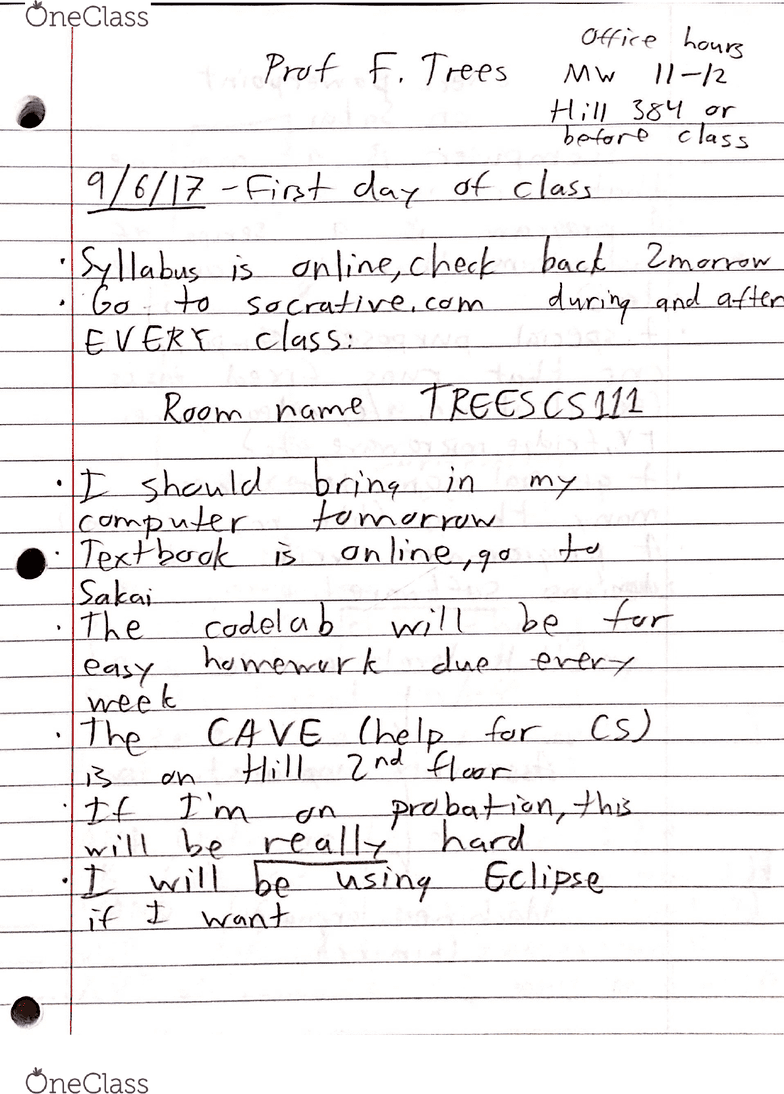 OneClass
Office hours
Prof F. Trees MW 11-12
Hill 384 or
before class
9/6/17 - First day of class
· Syllabus is online, check back 2morrow
· Go to socrative.com during and after
EVERY class:
Room name TREESCS111
· I should bring in my
computer tomorrow
· Textbook is online, go to
Sakai
· The codelab will be for
easy homework due every
week
· The CAVE (help for CS)
is on Hill 2nd floor
· If I'm on probation, this
will be really hard
· I will be using Eclipse
if I want
OneClass